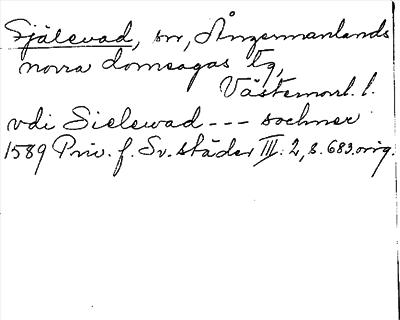 Själevad, sn, Ångermanlands
norra domsagas tg,
Västernorrl. l.
vdi Sielewad --- sochner
1589 Priv. f. Sv. städer III: 2, s. 683. orig.